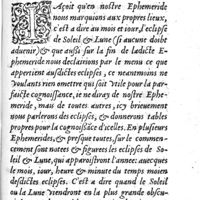 IAçoit qu'en nostre Ephemeride
nous marquions aux propres lieux,
c'est à dire au mois et iour, l'eclipse
de Soleil & Lune (si aucune doibt
aduenir) & que aussi sur la fin de ladicte E-
phemeride nous declairions par le menu ce que
appertient ausdictes eclipses, ce neantmoins ne
voulants rien omettre qui soit vtile pour la par-
faicte cognoissance, ie ne diray de nostre Ephe-
meride, mais de toutes autres, icy brieuement
nous parlerons des eclipses, & donnerons tables
propres pour la cognoissãce d'icelles. En plusieurs
Ephemerides, & presque toutes, sur le commen-
cement sont notees & figurees les eclipses de So-
leil & Lune, qui apparoistront l'annee: auecques
le mois, iour, heure & minute du temps moien
desdictes eclipses. C'est a dire quand le Soleil
ou la Lune viendront en la plus grande obscu-